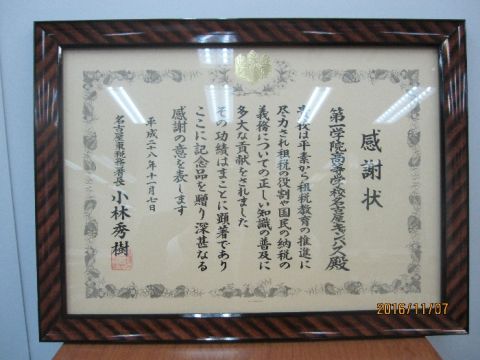 感謝状
第一学院高等学校名古屋キャンパス殿
貴校は平素から租税教育の推進に
尽力され租税の役割や国民の納税の
義務についての正しい知識の普及に
多大な貢献をされました
その功績はまことに顕著であり
ここに記念品を贈り深甚なる
感謝の意を表します
平成二十八年十一月七日
名古屋東税務署長 小林秀樹
2016/11/07